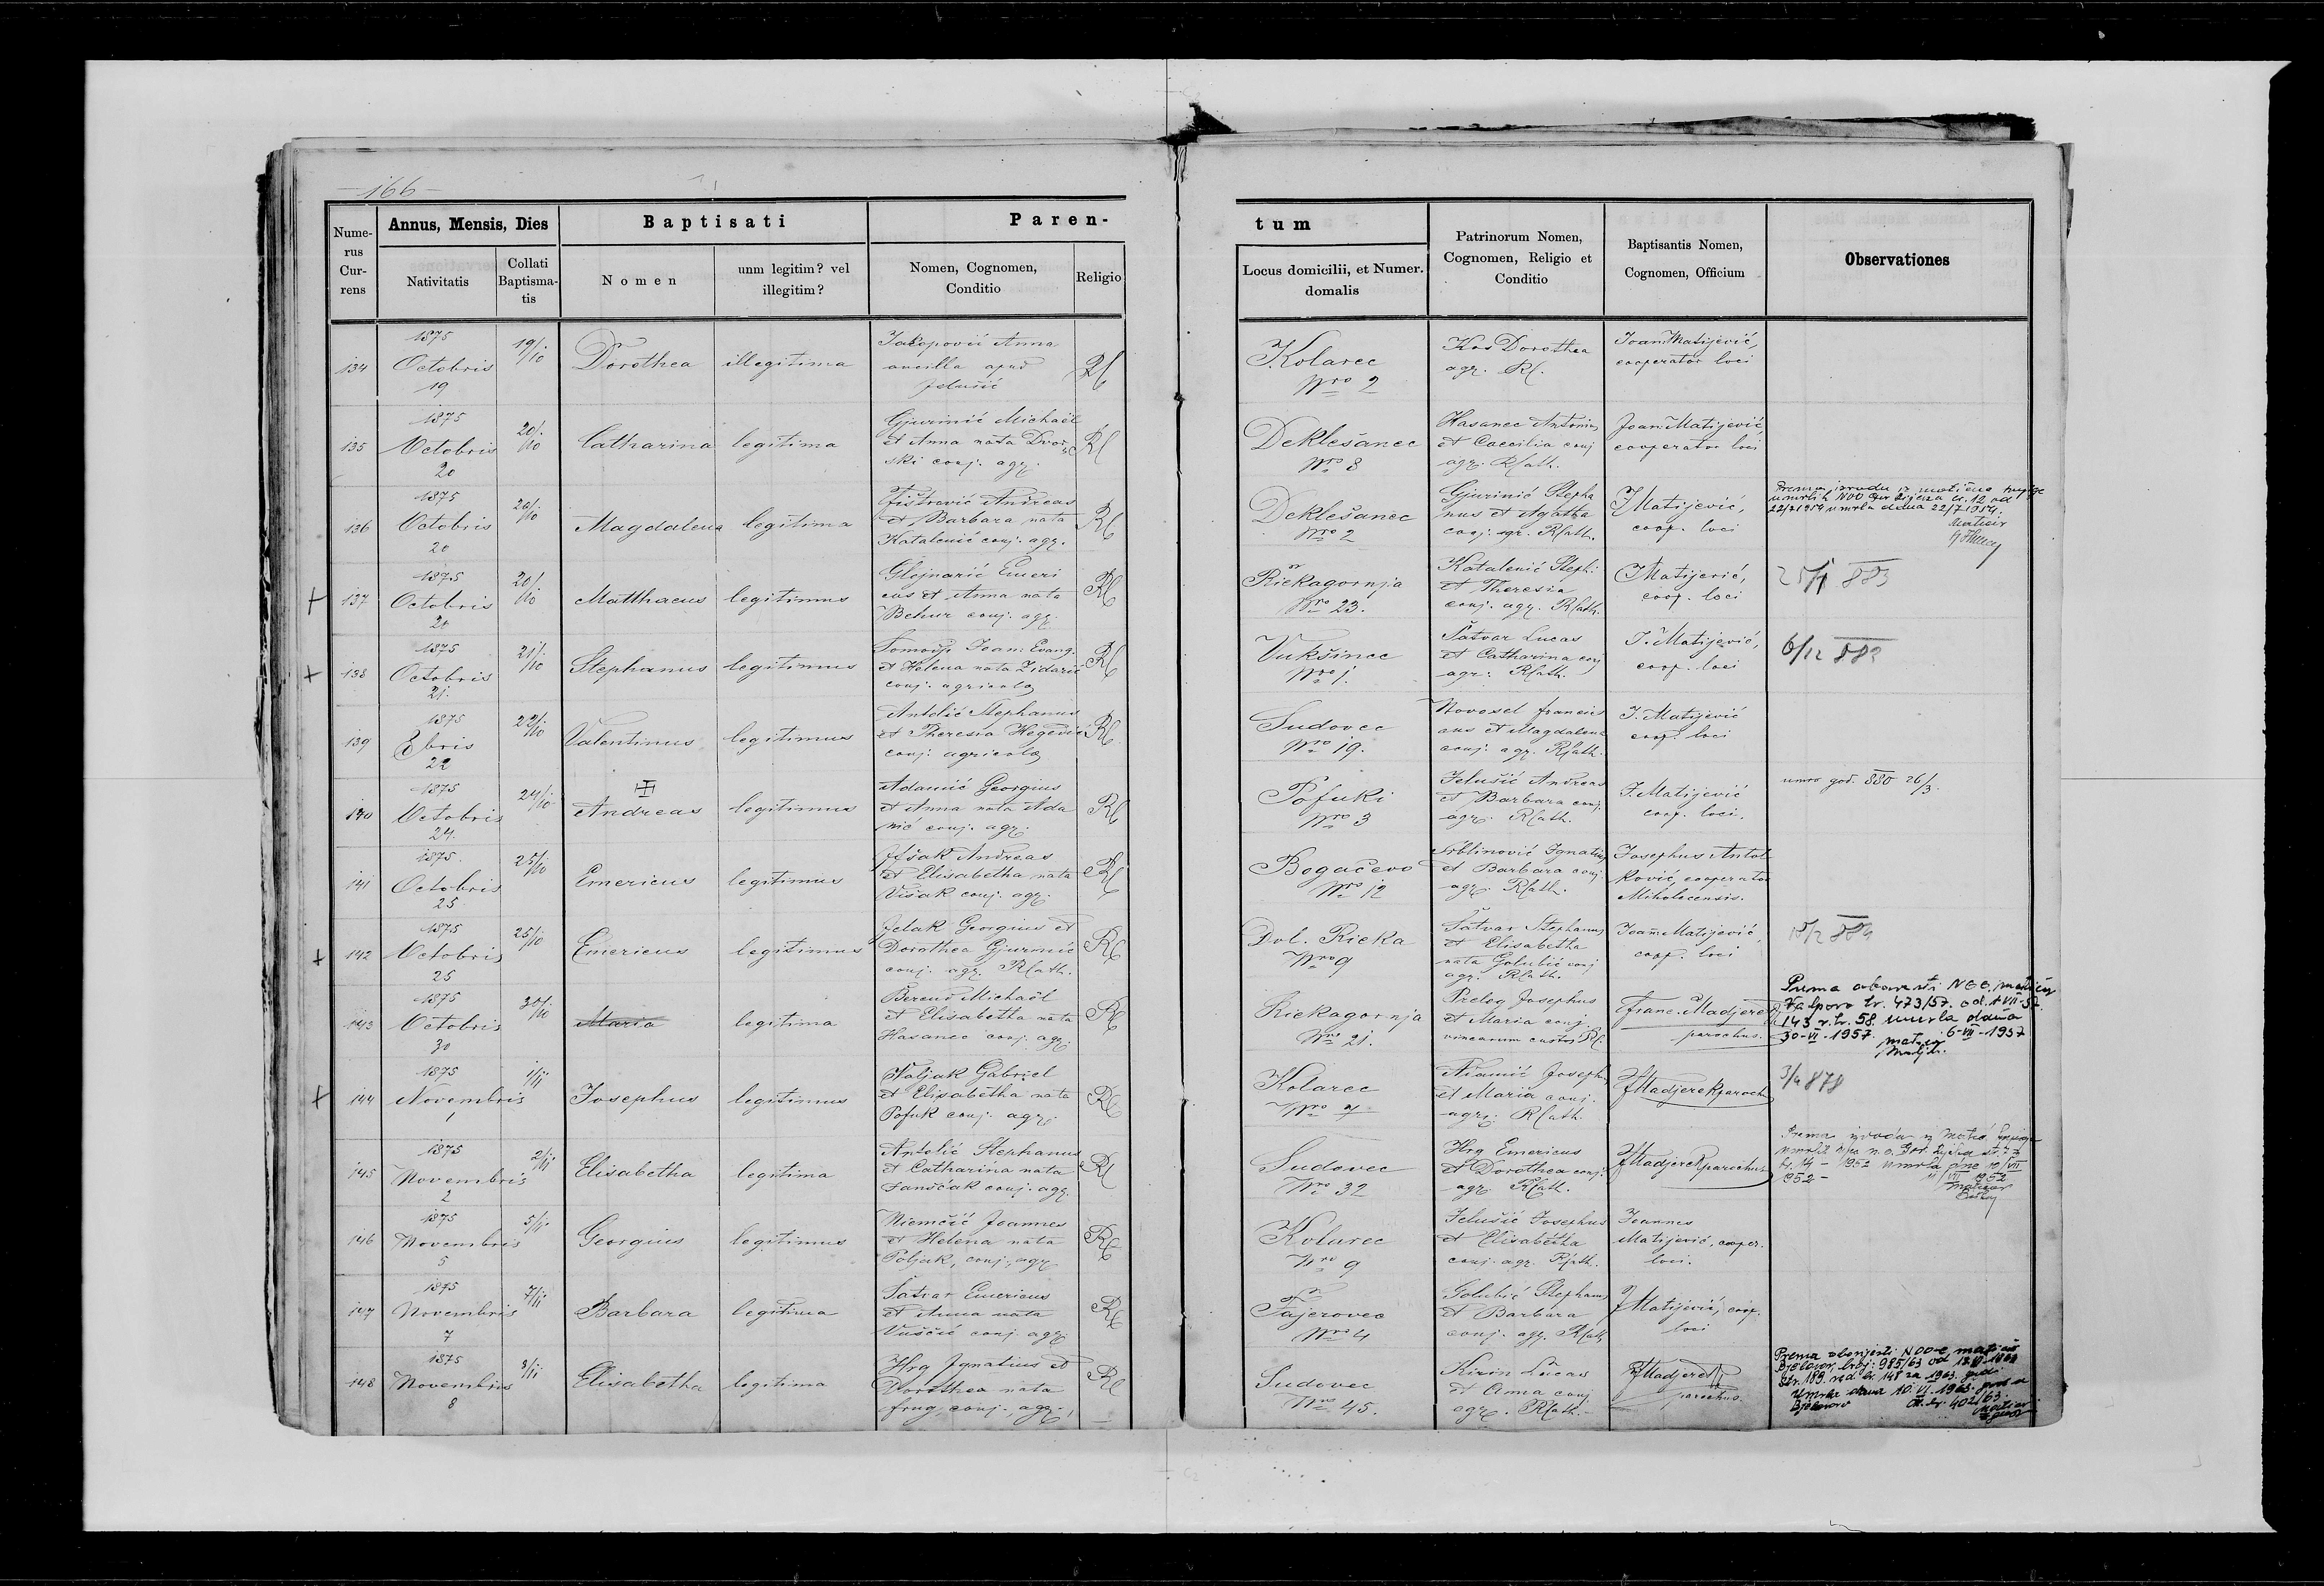 166
Nume-
rus
Cur-
rens
Annus, Mensis, Dies
Nativitatis
Collati
Baptisma-
tis
Baptisati
Nomen
unm legitim? vel
illegitim?
Paren-
Nomen, Cognomen,
Conditio
Religio
tum
Locus domicilii, et Numer.
domalis
Patrinorum Nomen,
Cognomen, Religio et
Conditio
Baptisantis Nomen,
Cognomen, Officium
Observationes
134
1875
Octobris
19
19/10
Dorothea
illegitima
Anna
ancilla apud
Jelušić
RC
Kolarec
Nro 2
Kos Dorothea
agr. RC.
Joan Matijević,
cooperator loci
135
1875
Octobris
20
20/10
Catharina
legitima
Gjurinić Michaël
et Anna nata Dvor
ski conj. agr.
RC
Deklešanec
Nro 8
Hasanec Antonius
et Caecilia conj
agr. RCath.
Joan. Matijević,
cooperator loci
136
1875
Octobris
20
20/10
Magdalena
legitima
Fištrović Andreas
et Barbara nata
Katalenić conj. agr.
RC
Deklešanec
Nro 2
Gjurinić Stepha
nus et Agatha
conj. agr. RCath.
J Matijević,
coop. loci
22/7 1954 umrla dana 22/7 1954.
137
1875
Octobris
20
20/10
Matthaeus
legitimus
Glojnarić Emeri
cus et Anna nata
Behur conj. agr.
RC
Riekagornja
Nro 23.
Katalenić Steph.
et Theresia
conj. agr. RCath.
J Matijević,
coop. loci
883
138
1875
Octobris
21.
21/10
Stephanus
legitimus
Joan. Evang.
et Helena nata Zidarić
conj. agricolae
RC
Vukšinec
Nro 1.
Šatvar Lucas
et Catharina conj
agr. RCath.
J. Matijević,
coop. loci
6/12
139
1875
8bris
22
22/10
Valentinus
legitimus
Antolić Stephanus
et Theresia
conj. agricolae
RC
Sudovec
Nro 19.
Novosel Francis
cus et Magdalena
conj. agr. RCath.
J. Matijević
coop. loci
140
1875
Octobris
24.
24/10
Andreas
legitimus
Adamić Georgius
et Anna nata Ada
mić conj. agr.
RC
Pofuki
Nro 3
Jelušić Andreas
et Barbara conj.
agr. RCath.
J. Matijević
coop. loci.
umro god. 880 26/3.
141
1875.
Octobris
25
25/10
Emericus
legitimus
Andreas
et Elisabetha nata
Višak conj. agr.
RC
Bogačevo
Nro 12
Srblinović Ignatius
et Barbara conj.
agr. RCath.
Josephus Antol
ković, cooperator
Miholecensis.
142
1875
Octobris
25
25/10
Emericus
legitimus
Jelak Georgius et
Dorothea Gjurinić
conj. agr. RCath.
RC
Dol. Rieka
Nro 9
Šatvar Stephanus
et Elisabetha
nata Golubić conj
agr. RCath.
Joan Matijević,
coop. loci
143
1875
Octobris
30
30/10
Maria
legitima
Michaël
et Elisabetha nata
Hasanec conj. agr.
RC
Riekagornja
Nro 21.
Prelog Josephus
et Maria conj.
vinearum custos RC.
Franc. Madjerek
parochus.
Valpovo br. 473/57. od 1.VII-57.
143 r. br. 58. umrla dana
30-VI-1957. 6-VII-1957
144
1875
Novembris
1
1/11
Josephus
legitimus
Poljak Gabriel
et Elisabetha nata
Pofuk conj. agr.
RC
Kolarec
Nro 7
Adamić Joseph
et Maria conj.
agr. RCath.
F Madjerek paroch
3/4 878
145
1875
Novembris
2
2/11
Elisabetha
legitima
Antolić Stephanus
et Catharina nata
Janščak conj. agr.
RC
Sudovec
Nro 32
Hrg Emericus
et Dorothea conj.
agr. RCath.
F Madjerek parochus
146
1875
Novembris
5
5/11
Georgius
legitimus
Niemčić Joannes
et Helena nata
Poljak, conj. agr.
RC
Kolarec
Nro 9
Jelušić Josephus
et Elisabetha
conj. agr. RCath.
Joannes
Matijević, cooper.
loci.
147
1875
Novembris
7
7/11
Barbara
legitima
Šatvar Emericus
et Anna nata
Vuščić conj. agr.
RC
Fajerovec
Nro 4
Golubić Stephanus
et Barbara
conj. agr. RCath
J Matijević, coop.
loci
148
1875
Novembris
8
8/11
Elisabetha
legitima
Hrg Ignatius et
Dorothea nata
Frug, conj., agr.,
RC
Sudovec
Nro 45.
Kirin Lucas
et Anna conj
agr. RCath.
F Madjerek
parochus.
Prema obavjesti NOO-e matičar
Bjelovar, broj: 985/63
str. 189. red. br. 148 za 1963. god.
Umrla dana 10. VI. 1963.
Bjelovar 402/63.